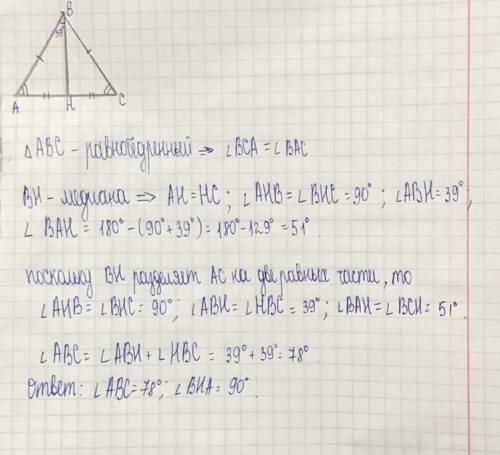 B
39°
A H C
△ABC - равнобедренный ⇒ ∠BCA = ∠BAC
BH - медиана ⇒ AH = HC ; ∠AHB = ∠BHC = 90° ; ∠ABH = 39° ,
∠ BAH = 180° - (90° + 39°) = 180° - 129° = 51° .
поскольку BH разделяет AC на две равных части, то
∠AHB = ∠BHC = 90° ; ∠ABH = ∠HBC = 39° ; ∠BAH = ∠BCH = 51° .
∠ABC = ∠ABH + ∠HBC = 39° + 39° = 78° .
Ответ: ∠ABC = 78° ; ∠BHA = 90° .